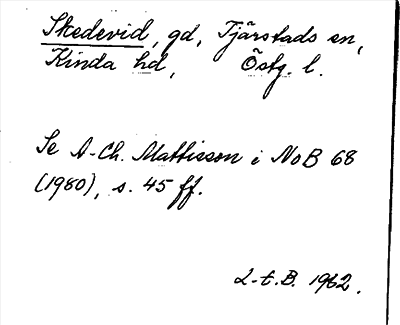 Skedevid, gd, Tjärstads sn,
Kinda hd, Östg. l.
Se A-Ch. Mattisson i NoB 68
(1980), s. 45 ff.
L-t.B. 1982.